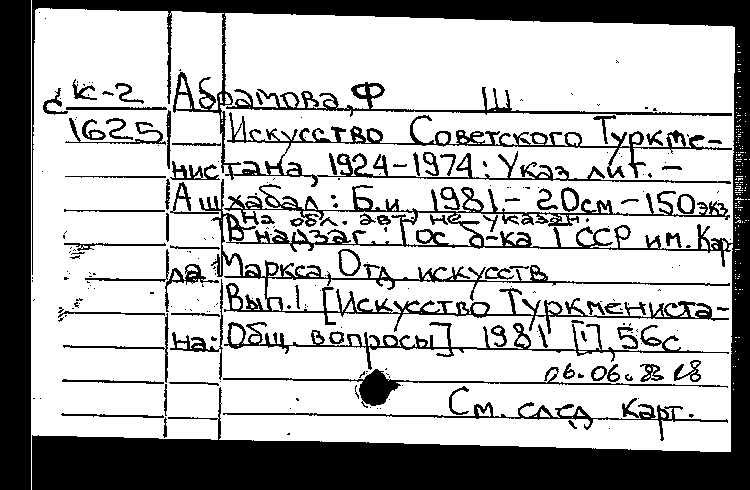 с к-2 Абрамова, Ф Ш
1625 Искусство Советского Туркме-
нистана, 1924-1974: Указ лит. -
Ашхабад : Б.и., 1981. - 20см - 150экз.
На обл. авт. не указан.
В надзаг.: Гос б-ка ТССР им. Кар
ла Маркса, Отд. искусств
Вып.1. [Искусство Туркмениста-
на: Общ. вопросы]. 1981 [1], 56с
06.06.83
См. след карт.